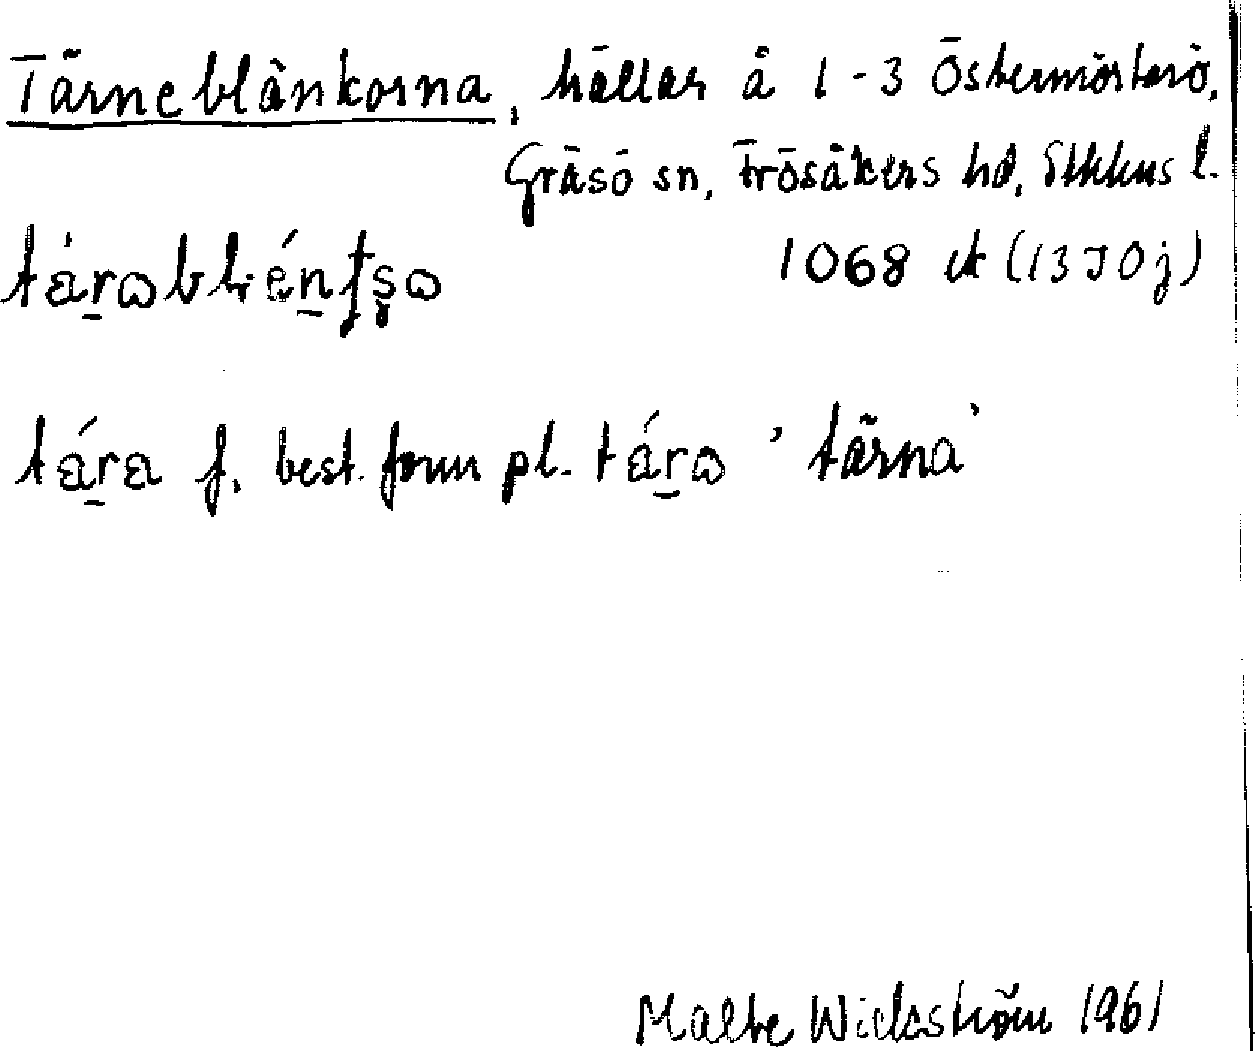 Tärneblänkorna, hällar å 1-3 Östermörterö,
Gräsö sn, Frösåkers hd, Sthlms l.
1068 et (13I0j)
tára f. best. form pl. 'tärna'
Malte Wickström 1961